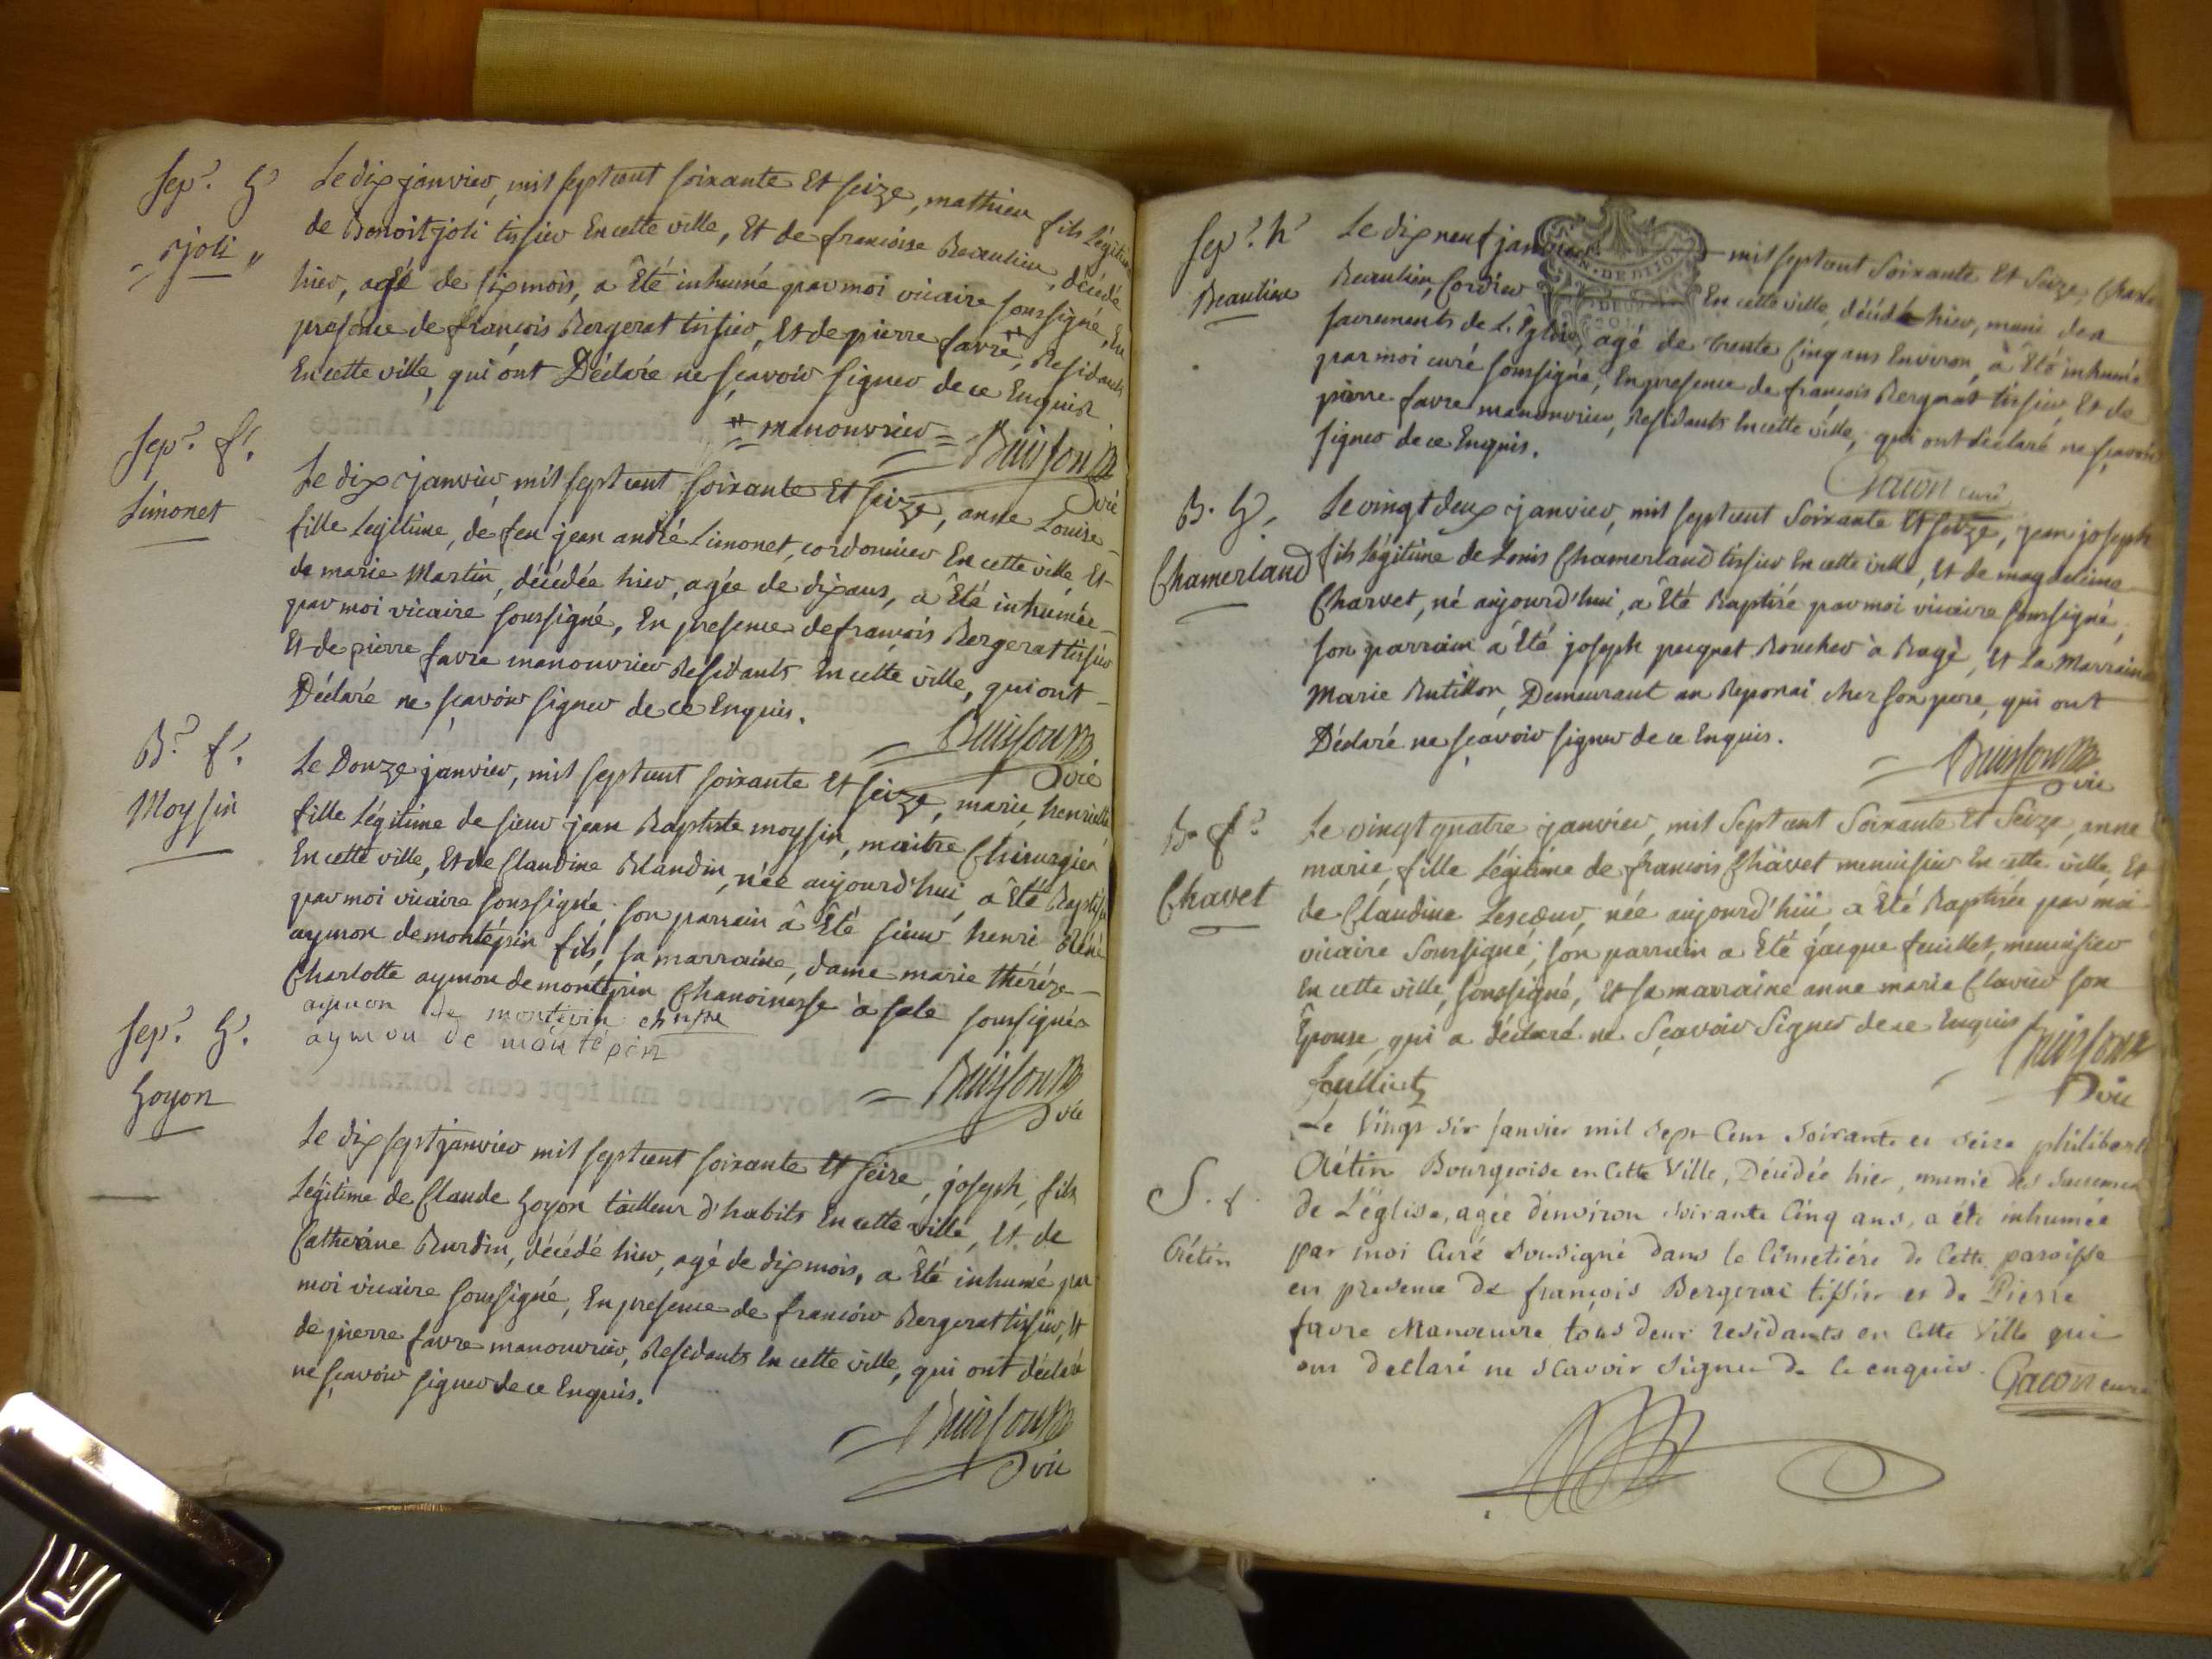 Sep.r G.
joli
Le dix janvier, mil sept cent soixante Et seize, mathieu fils Légitime
de Benoit joli tissier En cette ville, Et de francoise Beaulieu, décédé
hier, agé de six mois, a Eté inhumé par moi vicaire soussigné, En
presence de francois Bergerat tissier, Et de pierre favre # Residants
En cette ville, qui ont Déclaré ne sçavoir signer de ce Enquis
# manouvrier = Buisson
vic
Sep.r f.
Limonet
Le dix janvier, mil sept cent soixante Et seize, anne Louise
fille Legitime, de feu jean andré Limonet, cordonnier En cette ville, Et
de marie Martin, décédée hier, agée de dix ans, a Eté inhumée
par moi vicaire soussigné, En presence de francois Bergerat tissier
Et de pierre favre manouvrier Residants En cette ville, qui ont
Déclaré ne sçavoir signer de ce Enquis.
Buisson
vic
B. f.
Moysin
Le Douze janvier, mil sept cent soixante Et seize, marie henriette
fille Légitime de sieur jean Baptiste moysin, maitre Chirurgien
En cette ville, Et de Claudine Blandin, née aujourd'hui, a Eté Baptisée
par moi vicaire soussigné, son parrain a Eté sieur henri René
aymon de montépin fils, sa marraine, dame marie thérèze
Charlotte aymon de montépin Chanoinesse à sale soussignés
aymon de montepin chnsse
aymon de montepin
Buisson
vic
Sep.r G.
Goyon
Le dix sept janvier mil sept cent soixante Et seize, joseph, fils
Légitime de Claude Goyon tailleur d'habits En cette ville, Et de
Catherine Burdin, décédé hier, agé de dix mois, a Eté inhumé par
moi vicaire soussigné, En presence de francois Bergerat tissier, Et
de pierre favre manouvrier, Residants En cette ville, qui ont déclaré
ne sçavoir signer de ce Enquis.
Buisson
vic
Sep.r h.
Beaulieu
Le dix neuf janvier mil sept cent Soixante Et Seize, Charles
Beaulieu, Cordier En cette ville, décédé hier, muni des
sacrements de L'Eglise, agé de trente Cinq ans Environ, a Eté inhumé
par moi curé soussigné, En presence de francois Bergerat tissier, Et de
pierre favre manouvrier, Residants En cette ville, qui ont déclaré ne sçavoir
signer de ce Enquis.
Gacon curé
B. G.
Chamerland
Le vingt deux janvier, mil sept cent Soixante Et seize, jean joseph
fils Légitime de Louis Chamerland tissier En cette ville, Et de magdeleine
Charvet, né aujourd'hui, a Eté Baptisé par moi vicaire soussigné,
son parrain a Eté joseph peignet Boucher à Bagé, Et La Marraine
Marie Butillon, Demeurant au Reponai chez son pere, qui ont
Déclaré ne sçavoir signer de ce Enquis.
Buisson
vic
B. f.
Chavet
Le vingt quatre janvier, mil Sept cent Soixante Et Seize, anne
marie, fille Légitime de francois Chavet menuisier En cette ville, Et
de Claudine Lescœur, née aujourd'hui, a Eté Baptisée par moi
vicaire Soussigné; son parrain a Eté jacque feuillet, menuisier
En cette ville, soussigné, Et sa marraine anne marie Clavier son
Epouse, qui a déclaré ne Sçavoir Signer de ce Enquis
Buisson
vic
S. f.
Crétin
Le Vingt six janvier mil sept Cent soixante et seize philiberte
Crétin Bourgeoise en Cette Ville, Décédée hier, munie des sacremens
de L'église, agée d'environ soixante Cinq ans, a été inhumée
par moi Curé Sousigné dans le Cimetiére de Cette paroisse
en presence de françois Bergerat tissier et de Pierre
favre Manœuvre tous deux residants en Cette Ville qui
ont declaré ne scavoir signer de ce enquis. Gacon curé